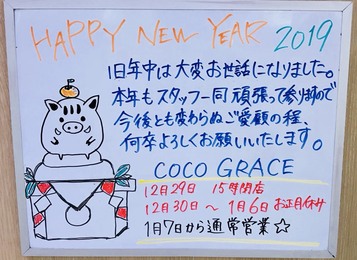 HAPPY NEW YEAR 2019
旧年中は大変お世話になりました。
本年もスタッフ一同頑張って参りますので
今後とも変わらぬご愛顧の程、
何卒よろしくお願いいたします。
COCO GRACE
12月29日 15時閉店
12月30日〜1月6日お正月休み
1月7日から通常営業☆